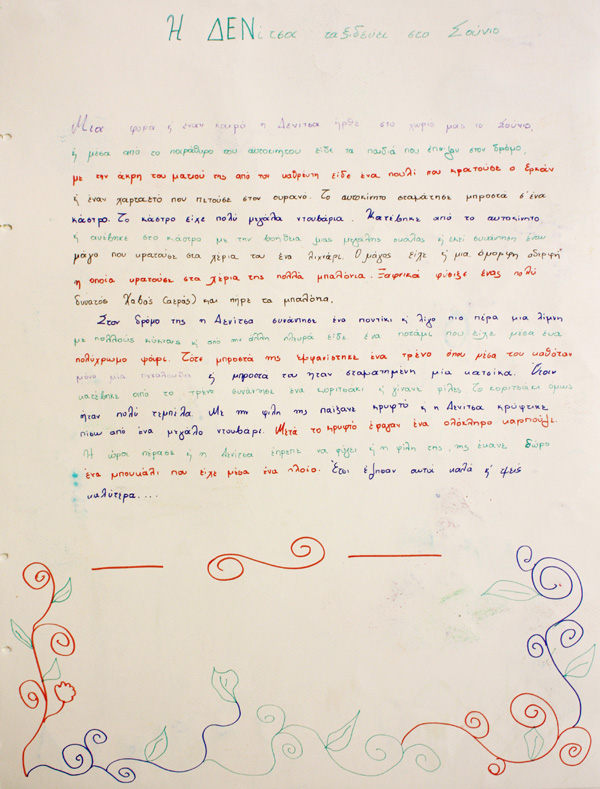 Η ΔΕΝίτσα ταξιδεύει στο Σούνιο
Μια φορά ή έναν καιρό η Δενίτσα ήρθε στο χωριό μας το Σούνιο,
ή μέσα από το παράθυρο του αυτοκινήτου είδε τα παιδιά που έπαιζαν στον δρόμο,
με την άκρη του ματιού της από τον καθρέυτη είδε ένα πουλί που κρατούσε ο Ερκάν
ή έναν χαρταετό που πετούσε στον ουρανό. Το αυτοκίνητο σταμάτησε μπροστά σ' ένα
κάστρο. Το κάστρο είχε πολύ μεγάλα ντουβάρια. Κατέβηκε από το αυτοκίνητο
ή ανέβηκε στο κάστρο με την βοήθια μιας μεγάλης σκάλας ή εκεί συνάντησε έναν
μάγο που κρατούσε στα χέρια του ένα λυχνάρι. Ο μάγος είχε ή μια όμορφη αδερφή
η οποία κρατούσε στα χέρια της πολλά μπαλόνια. Ξαφνικά φύσιξε ένας πολύ
δυνατός Χαβάς (αέρας) και πήρε τα μπαλόνια.
Στον δρόμο της η Δενίτσα συνάντησε ένα ποντίκι ή λίγο πιο πέρα μια λίμνη
με πολλούς κύκνους ή από την άλλη πλευρά είδε ένα ποτάμι που είχε μέσα ένα
πολύχρωμο ψάρι. Τότε μπροστά της εμφανίστηκε ένα τρένο όπου μέσα του καθόταν
μόνο μια ή μπροστά του ήταν σταματημένη μία κατσίκα. Όταν
κατέβηκε από το τρένο συνάντησε ένα κοριτσάκι ή γίνανε φίλες. Το κοριτσάκι όμως
ήταν πολύ τεμπέλα. Με την φίλη της παίξανε κρυφτό ή η Δενίτσα κρύφτηκε
πίσω από ένα μεγάλο ντουβάρι. Μετά το κρυφτό έφαγαν ένα ολόκληρο καρπούζι.
Η ώρα πέρασε ή η Δενίτσα έπρεπε να φύγει ή η φίλη της, της έκανε δώρο
ένα μπουκάλι που είχε μέσα ένα πλοίο. Έτσι έζησαν αυτοί καλά κ' εμείς
καλύτερα....